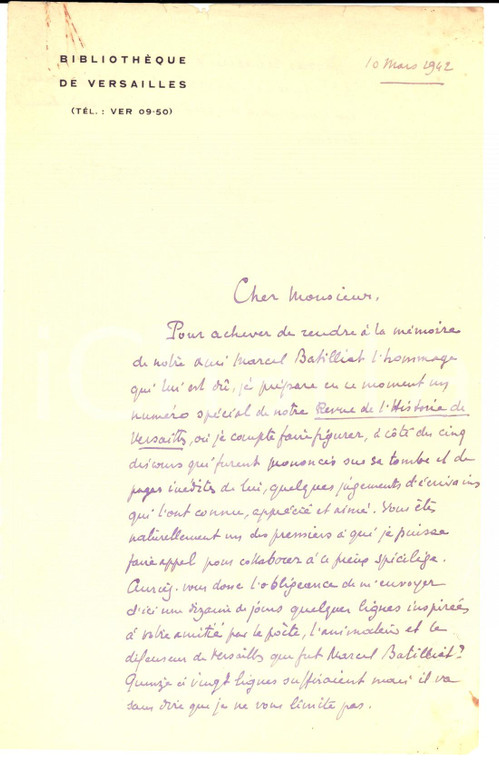 BIBLIOTHÈQUE
DE VERSAILLES
(TÉL. : VER 09-50)
10 Mars 1942
Cher Monsieur,
Pour achever de rendre à la mémoire
de notre ami Marcel Batilliat l'hommage
qui lui est dû, je prépare en ce moment un
numéro spécial de notre Revue de l'Histoire de
Versailles, où je compte faire figurer, à côté des cinq
discours qui furent prononcés sur sa tombe et de
pages inédites de lui, quelques jugements d'écrivains
qui l'ont connu, apprécié et aimé. Vous êtes
naturellement un des premiers à qui je puisse
faire appel pour collaborer à ce pieux spicilège.
Auriez-vous donc l'obligeance de m'envoyer
d'ici une dizaine de jours quelques lignes inspirées
à votre amitié par le poète, l'animateur et le
défenseur de Versailles que fut Marcel Batilliat ?
Quinze à vingt lignes suffiraient mais il va
sans dire que je ne vous limite pas.